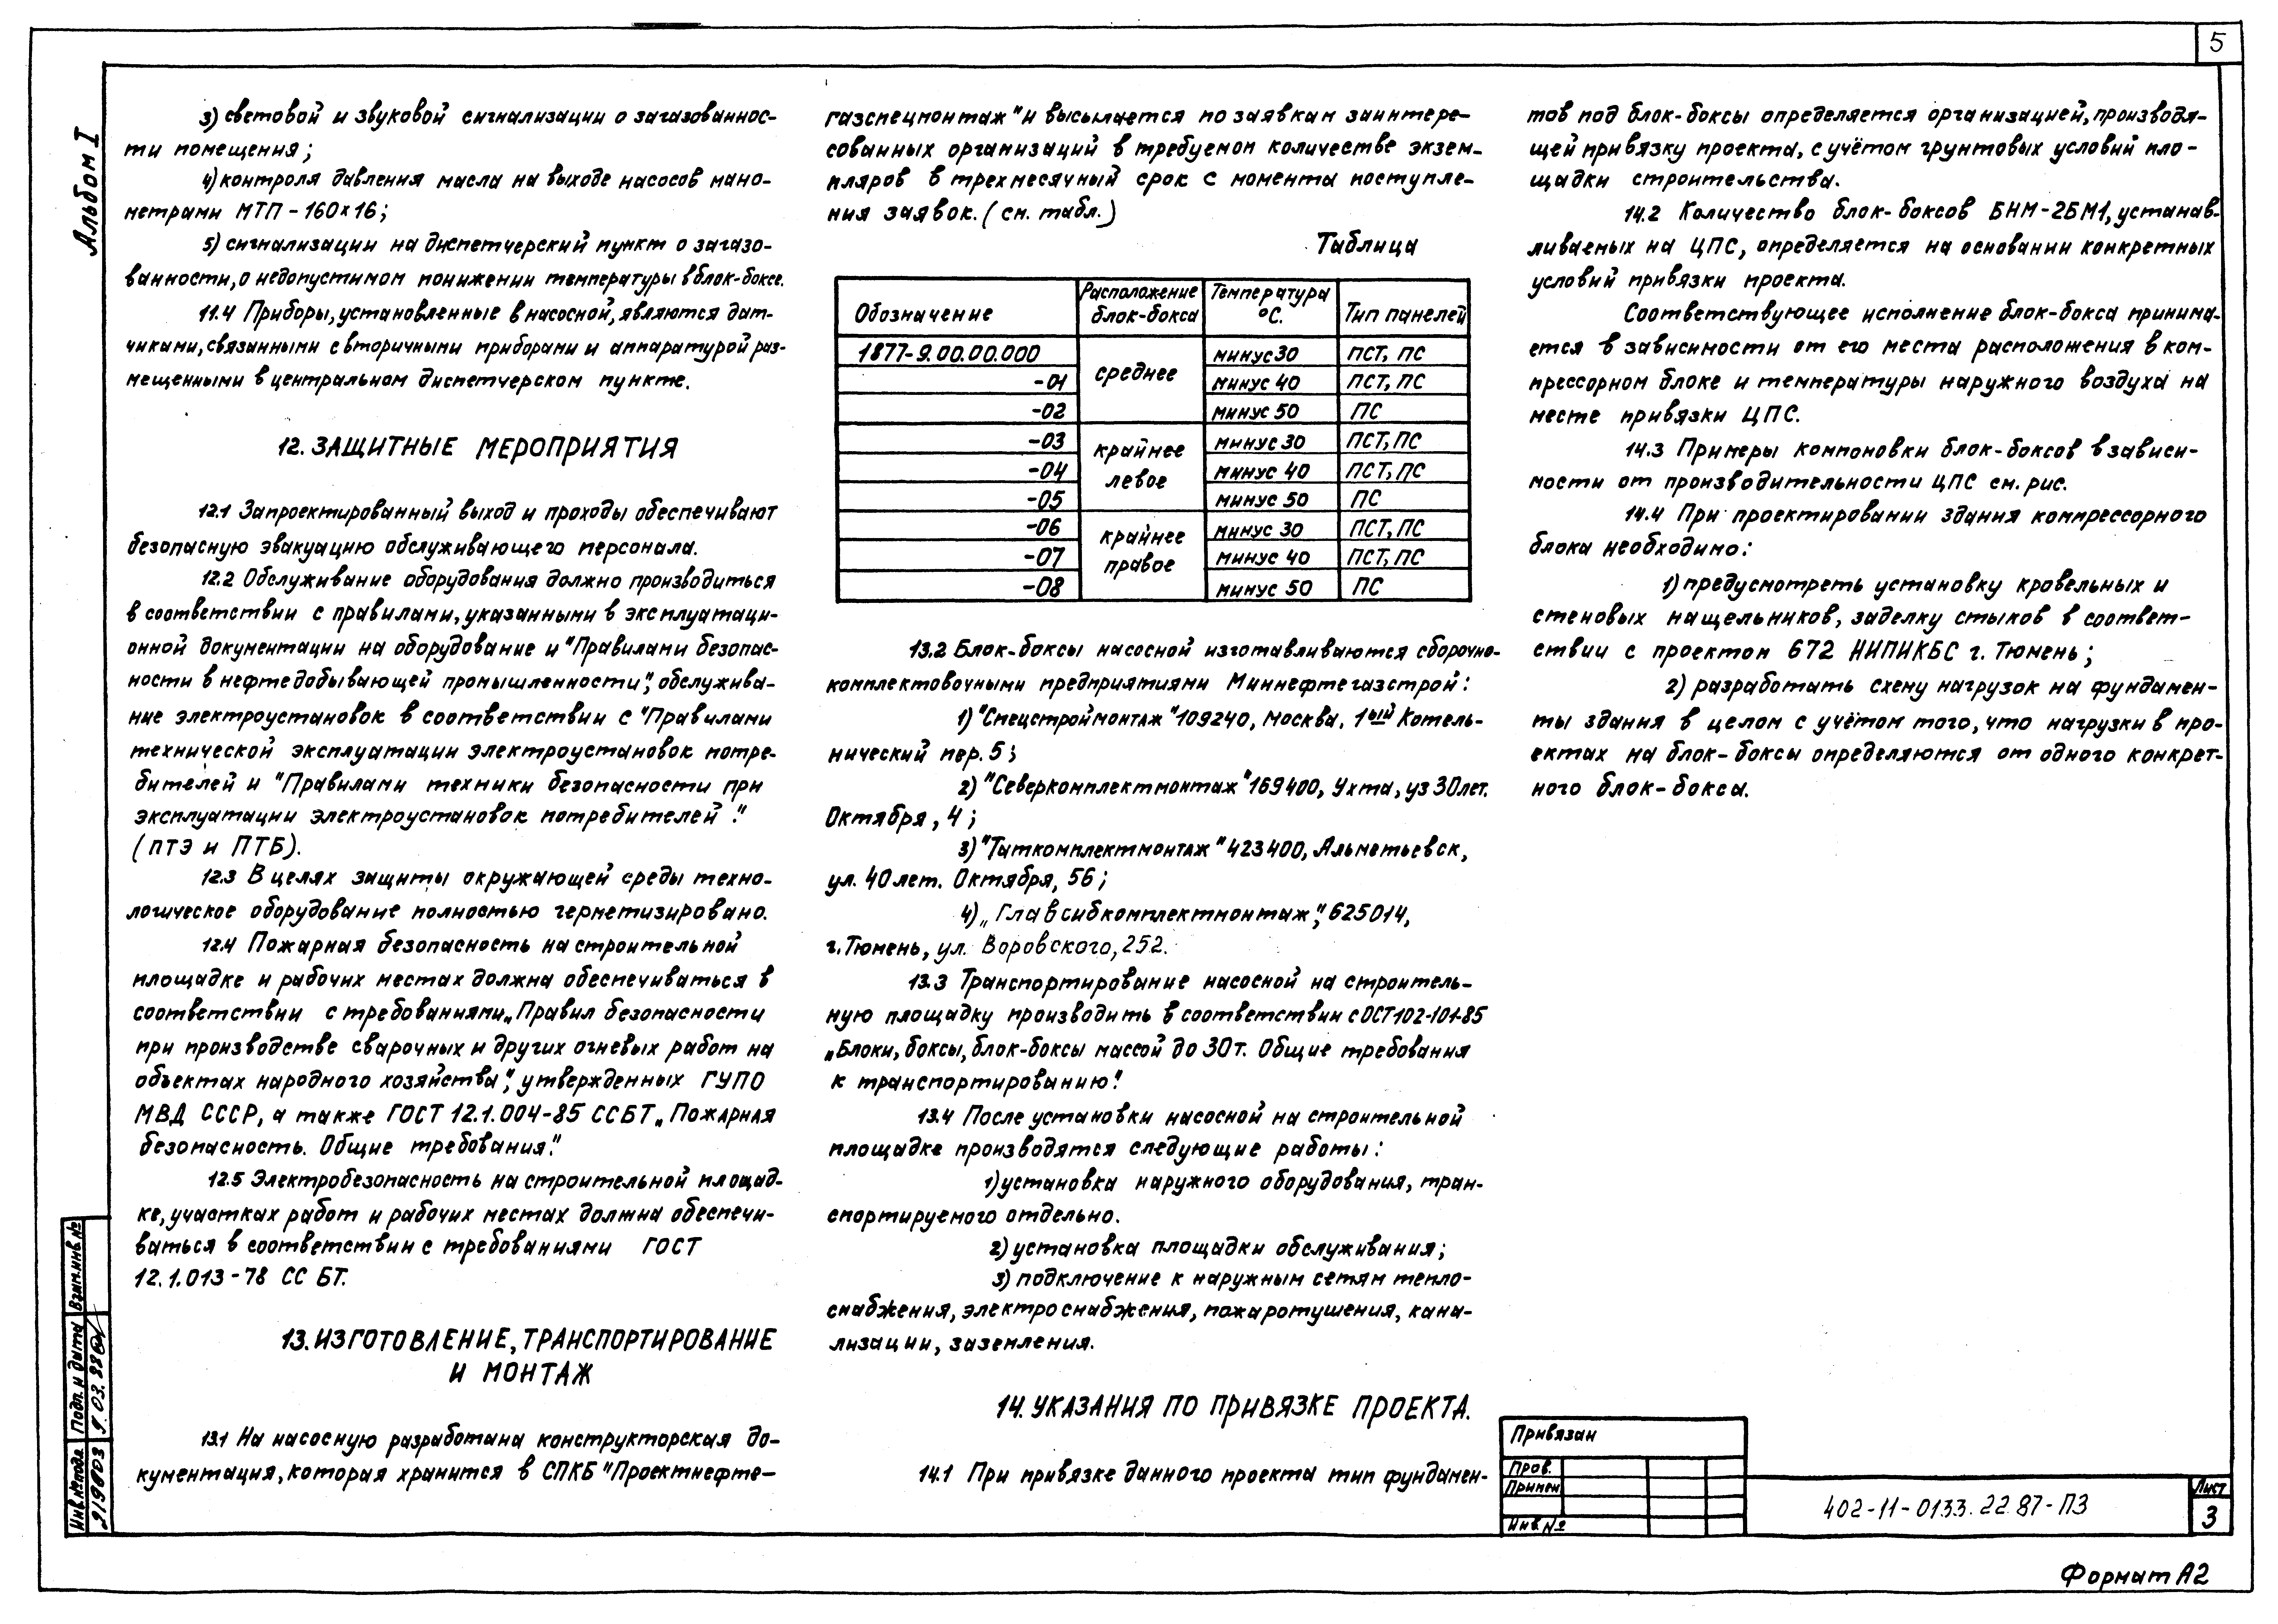 5
Альбом I
3) световой и звуковой сигнализации о загазованнос-
ти помещения;
4) контроля давления масла на выходе насосов мано-
метрами МТП-160×16;
5) сигнализации на диспетчерский пункт о загазо-
ванности, о недопустимом понижении температуры в блок-боксе.
11.4 Приборы, установленные в насосной, являются дат-
чиками, связанными с вторичными приборами и аппаратурой раз-
мещенными в центральном диспетчерском пункте.
12. ЗАЩИТНЫЕ МЕРОПРИЯТИЯ
12.1 Запроектированный выход и проходы обеспечивают
безопасную эвакуацию обслуживающего персонала.
12.2 Обслуживание оборудования должно производиться
в соответствии с правилами, указанными в эксплуатаци-
онной документации на оборудование и "Правилами безопас-
ности в нефтедобывающей промышленности", обслужива-
ние электроустановок в соответствии с "Правилами
технической эксплуатации электроустановок потре-
бителей и "Правилами техники безопасности при
эксплуатации электроустановок потребителей".
(ПТЭ и ПТБ).
12.3 В целях защиты окружающей среды техно-
логическое оборудование полностью герметизировано.
12.4 Пожарная безопасность на строительной
площадке и рабочих местах должна обеспечиваться в
соответствии с требованиями „Правил безопасности
при производстве сварочных и других огневых работ на
объектах народного хозяйства", утвержденных ГУПО
МВД СССР, а также ГОСТ 12.1.004-85 ССБТ „Пожарная
безопасность. Общие требования".
12.5 Электробезопасность на строительной площад-
ке, участках работ и рабочих местах должна обеспечи-
ваться в соответствии с требованиями ГОСТ
12.1.013-78 ССБТ.
13. ИЗГОТОВЛЕНИЕ, ТРАНСПОРТИРОВАНИЕ
И МОНТАЖ
13.1 На насосную разработана конструкторская до-
кументация, которая хранится в СПКБ "Проектнефте-
газспецмонтаж" и высылается по заявкам заинтере-
сованных организаций в требуемом количестве экзем-
пляров в трехмесячный срок с момента поступле-
ния заявок. (см. табл.)
Таблица
Обозначение Расположение блок-бокса Температура °С. Тип панелей
1877-9.00.00.000 среднее минус 30 ПСТ, ПС
-01 минус 40 ПСТ, ПС
-02 минус 50 ПС
-03 крайнее левое минус 30 ПСТ, ПС
-04 минус 40 ПСТ, ПС
-05 минус 50 ПС
-06 крайнее правое минус 30 ПСТ, ПС
-07 минус 40 ПСТ, ПС
-08 минус 50 ПС
13.2 Блок-боксы насосной изготавливаются сборочно-
комплектовочными предприятиями Миннефтегазстрой:
1) "Спецстроймонтаж" 109240, Москва, 1ый Котель-
нический пер. 5;
2) "Северкомплектмонтаж" 169400, Ухта, уз 30 лет.
Октября, 4;
3) "Таткомплектмонтаж" 423400, Альметьевск,
ул. 40 лет. Октября, 56;
4) „Главсибкомплектмонтаж", 625014,
г. Тюмень, ул. Воровского, 252.
13.3 Транспортирование насосной на строитель-
ную площадку производить в соответствии с ОСТ 102-101-85
„Блоки, боксы, блок-боксы массой до 30т. Общие требования
к транспортированию".
13.4 После установки насосной на строительной
площадке производятся следующие работы:
1) установка наружного оборудования, тран-
спортируемого отдельно.
2) установка площадки обслуживания;
3) подключение к наружным сетям тепло-
снабжения, электроснабжения, пожаротушения, кана-
лизации, заземления.
14. УКАЗАНИЯ ПО ПРИВЯЗКЕ ПРОЕКТА.
14.1 При привязке данного проекта тип фундамен-
тов под блок-боксы определяется организацией, производя-
щей привязку проекта, с учётом грунтовых условий пло-
щадки строительства.
14.2 Количество блок-боксов БНМ-2БМ1, устанав-
ливаемых на ЦПС, определяется на основании конкретных
условий привязки проекта.
Соответствующее исполнение блок-бокса принима-
ется в зависимости от его места расположения в ком-
прессорном блоке и температуры наружного воздуха на
месте привязки ЦПС.
14.3 Примеры компоновки блок-боксов в зависи-
мости от производительности ЦПС см. рис.
14.4 При проектировании здания компрессорного
блока необходимо:
1) предусмотреть установку кровельных и
стеновых нащельников, заделку стыков в соответ-
ствии с проектом 672 НИПИКБС г. Тюмень;
2) разработать схему нагрузок на фундамен-
ты здания в целом с учётом того, что нагрузки в про-
ектах на блок-боксы определяются от одного конкрет-
ного блок-бокса.
Привязан
Пров.
Примен
Инв. №
402-11-0133.22.87-ПЗ
Лист
3
Формат А2
Взам.инв.№
Подп. и дата
Инв.№ подл.